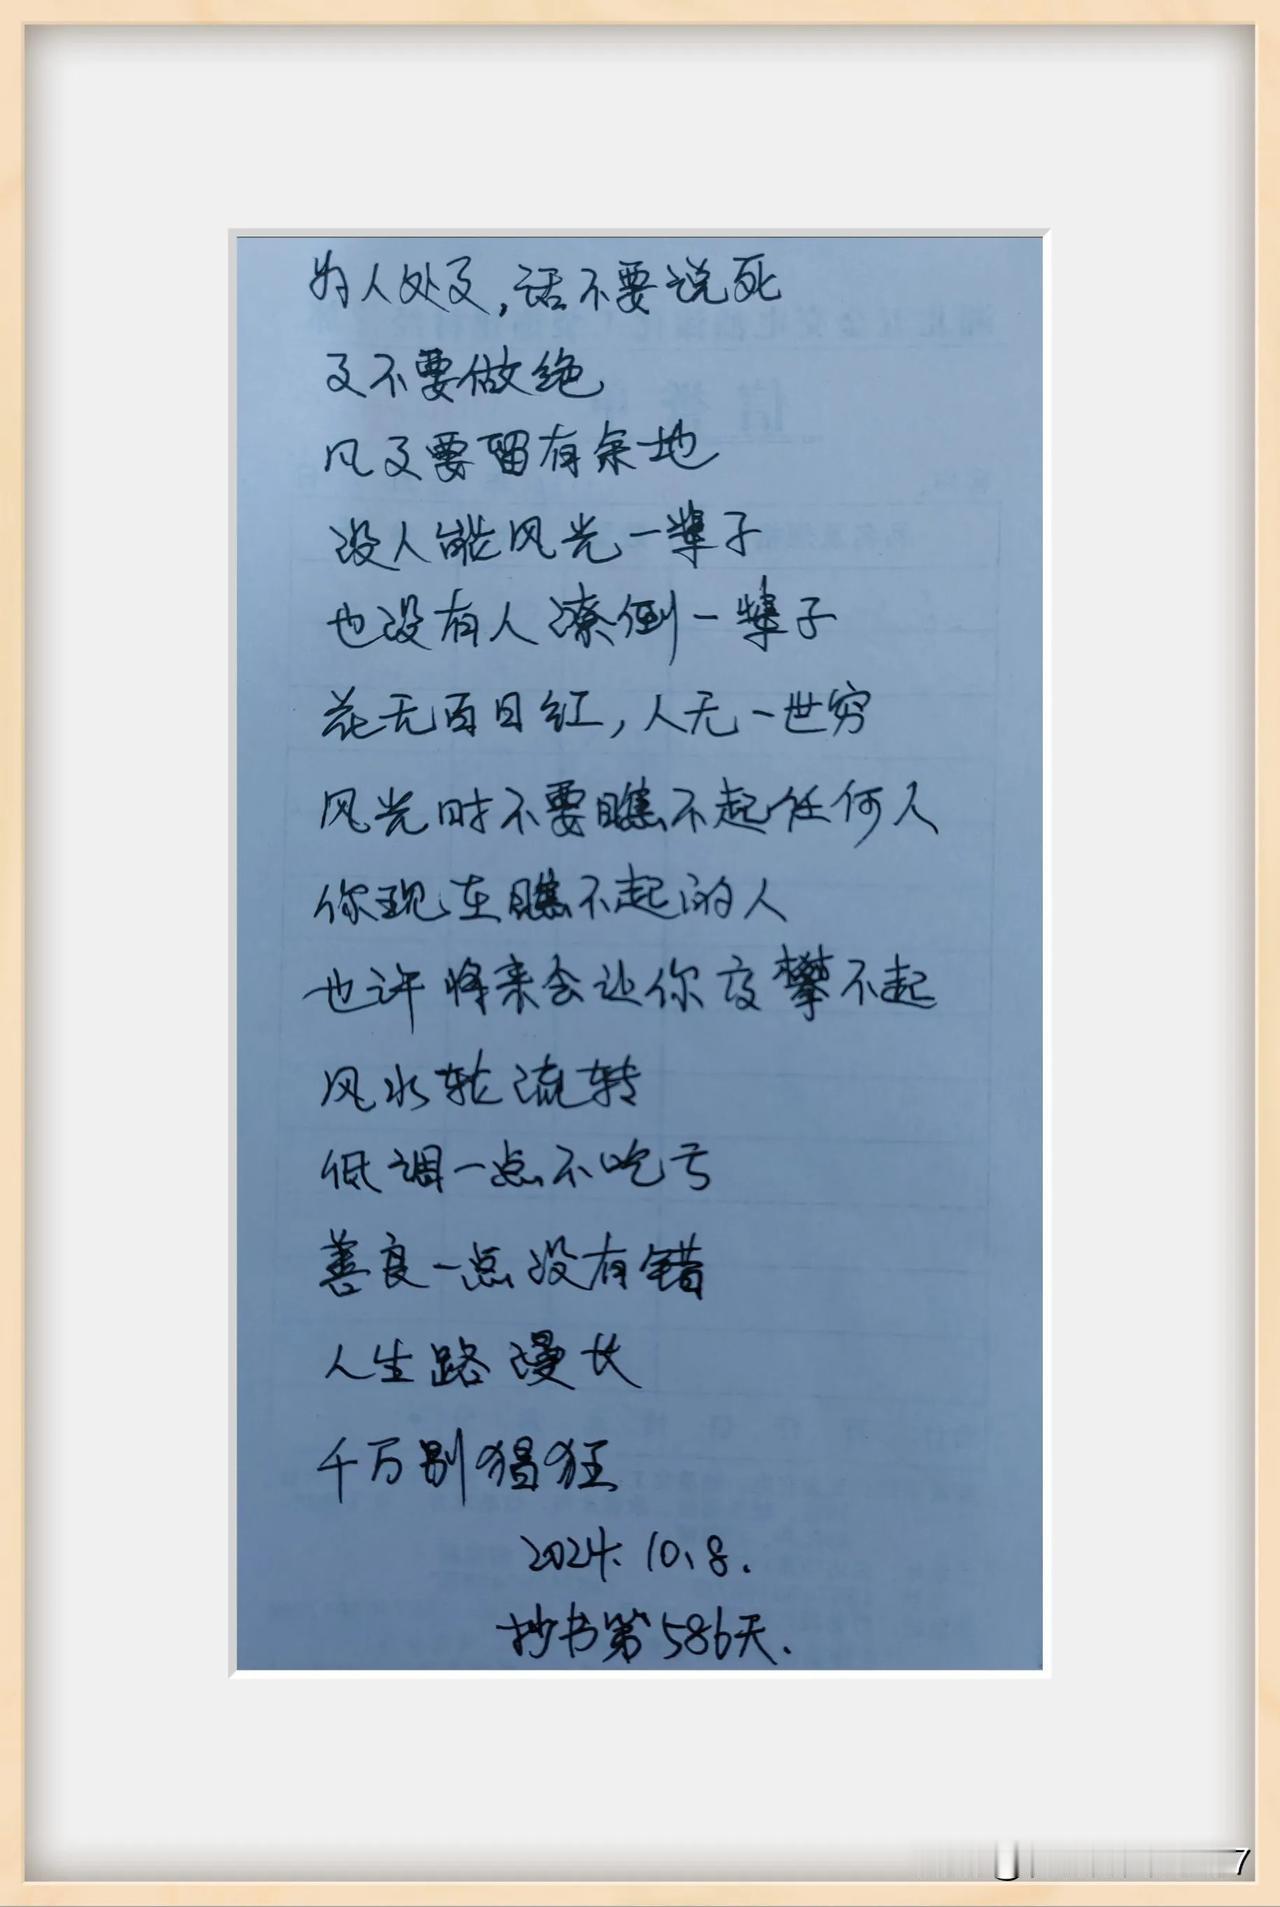 为人处事，话不要说死
事不要做绝
凡事要留有余地
没人能风光一辈子
也没有人潦倒一辈子
花无百日红，人无一世穷
风光时不要瞧不起任何人
你现在瞧不起的人
也许将来会让你高攀不起
风水轮流转
低调一点不吃亏
善良一点没有错
人生路漫长
千万别猖狂
2024.10.8.
抄书第586天.
7